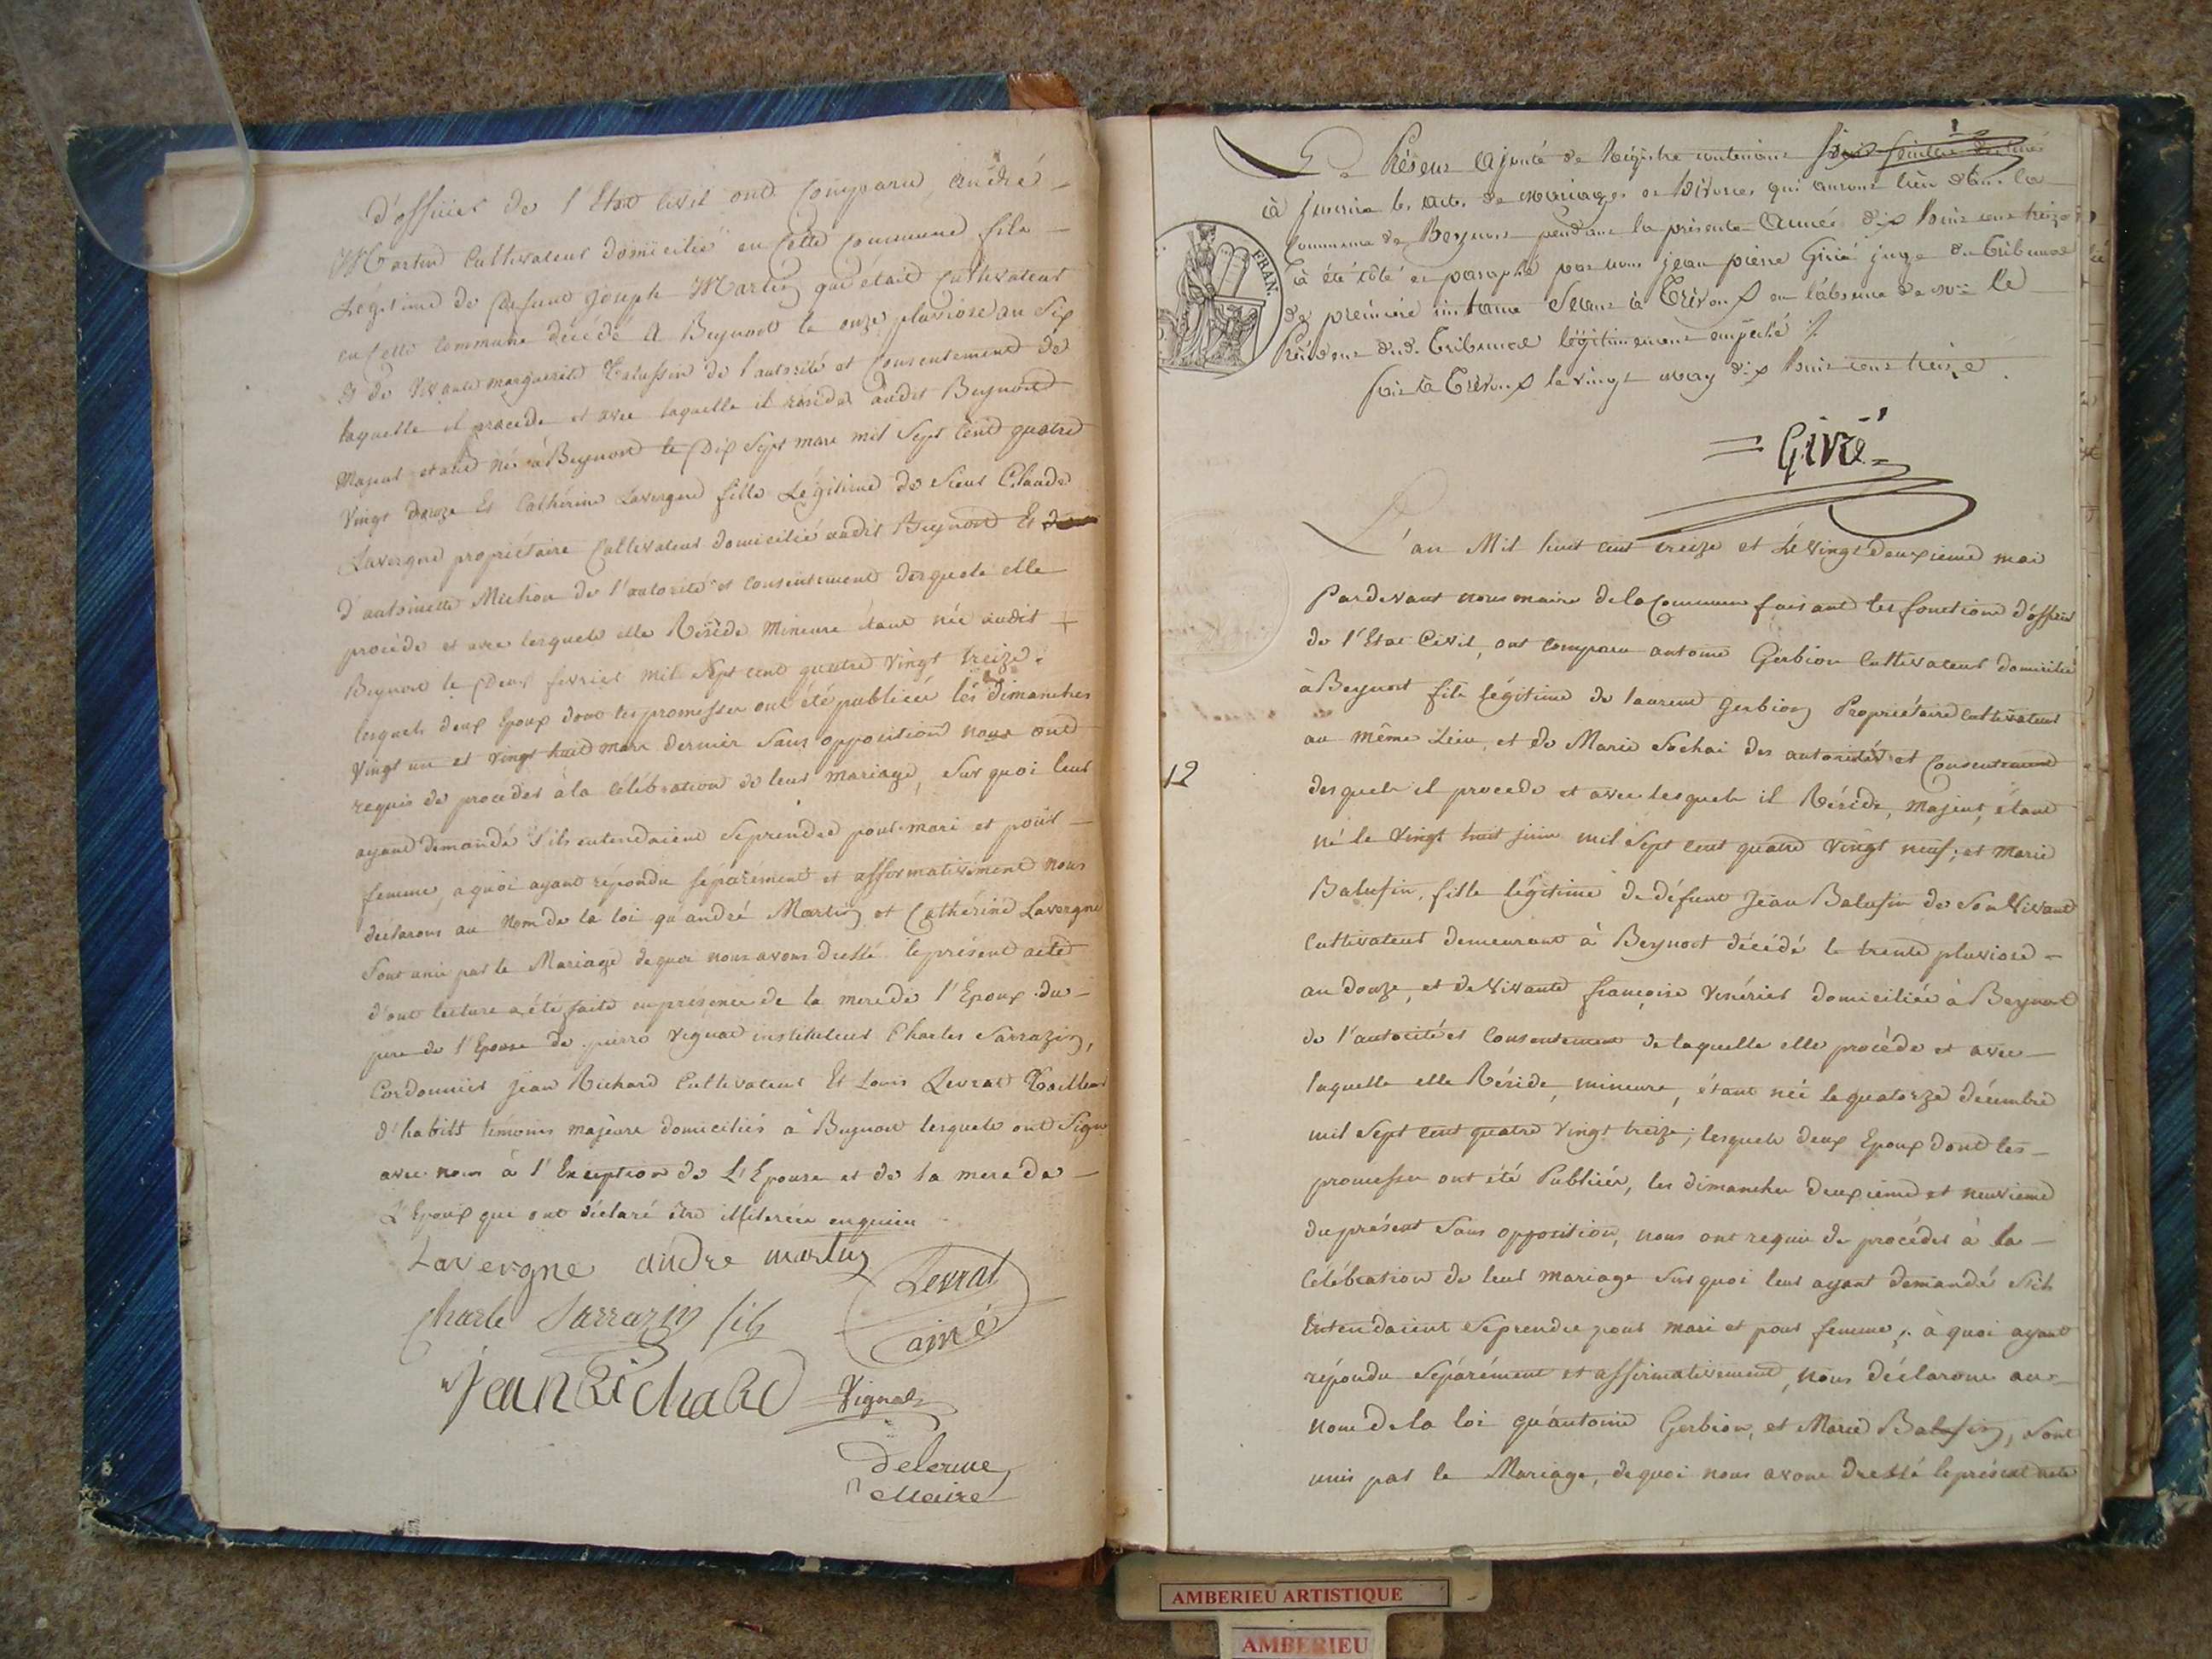 d'officier de l'Etat Civil ont comparu, André
Martin Cultivateur domicilié en cette commune fils
Légitime de défunt Joseph Martin qui était Cultivateur
en cette commune décédé à Beynost le onze pluviose an Six
Et de Vivante marguerite de l'autorité et Consentement de
laquelle il procede et avec laquelle il réside audit Beynost
Majeur étant né à Beynost le Dix Sept mars mil Sept Cent quatre
Vingt douze Et Cathérine Lavergne fille Légitime de Sieur Claude
Lavergne propriétaire Cultivateur domicilié audit Beynost Et
d'antoinette Michon de l'autorité et Consentement desquels elle
procéde et avec lesquels elle Réside Mineure étant née audit
Beynost le Deux fevrier mil Sept cent quatre Vingt treize.
lesquels deux Epoux dont les promesses ont été publiées les dimanches
Vingt un et Vingt huit mars dernier Sans opposition nous ont
requis de proceder à la Célébration de leur Mariage, Sur quoi leur
ayant demandé S'ils entendaient Se prendre pour mari et pour
femme, a quoi ayant répondu séparément et affirmativement nous
déclarons au Nom de la loi qu'andré Martin et Cathérine Lavergne
Sont unis par le Mariage de quoi nous avons dressé le présent acte
d'ont lecture a été faite en présence de la mere de l'Epoux du
pere de l'Epouse de pierre Vignat instituteur Charles Sarrazin,
Cordonnier Jean Richard Cultivateur Et Louis Levrat Tailleur
d'habits témoins majeurs domiciliés à Beynost lesquels ont Signé
avec nous à l'Exception de L'Epouse et de la mere de
L'Epoux qui ont déclaré être illiterées enquises
Lavergne andre martin
Levrat
ainé
Charle Sarrazin fils
Jean Richard Vignat
Delorme
Maire
Le Présent ajouté de Régistre contenant
à Inscrire les actes de mariages et divorces qui auront lieu dans la
Commune de Beynost pendant la présente année dix huit cent treize
FRAN.
à été coté et paraphé par nous jean pierre Givié juge du tribunal
de premiere instance Séant à Trévoux en l'absence de Mr le
Président dud. tribunal légitimement empeché
fait à Trévoux le vingt may dix huit cent treize
Givié
L'an Mil huit cent treize et Le Vingt deuxieme mai
Pardevant nous maire de la Commune faisant les fonctions d'officier
de l'Etat Civil, ont comparu antoine Gerbion Cultivateur domicilié
à Beynost fils légitime de laurent Gerbion Propriétaire Cultivateur
au même Lieu, et de Marie Sochai des autorités et Consentement
12
desquels il procede et avec lesquels il Réside, majeur, étant
né le Vingt huit juin mil Sept Cent quatre Vingt neuf; et Marie
Balufin, fille légitime de défunt Jean Balufin de Son Vivant
Cultivateur demeurant à Beynost décédé le trente pluviose
an douze, et de Vivante françoise Vénérier domiciliée à Beynost
de l'autorité et Consentement de laquelle elle procéde et avec
laquelle elle Réside, mineure, étant née le quatorze décembre
mil Sept cent quatre Vingt treize; lesquels deux Epoux dont les
promesses ont été Publiées, les dimanches deuxieme et neuvieme
du présent Sans opposition, nous ont requis de procéder à la
Célébration de leur Mariage Sur quoi leur ayant demandé S'ils
Entendaient Se prendre pour Mari et pour femme; à quoi ayant
répondu Séparément et affirmativement, nous déclarons au
nom de la loi qu'antoine Gerbion, et Marie Balufin, Sont
unis par le Mariage, de quoi nous avons dressé le présent acte
AMBERIEU ARTISTIQUE
AMBERIEU